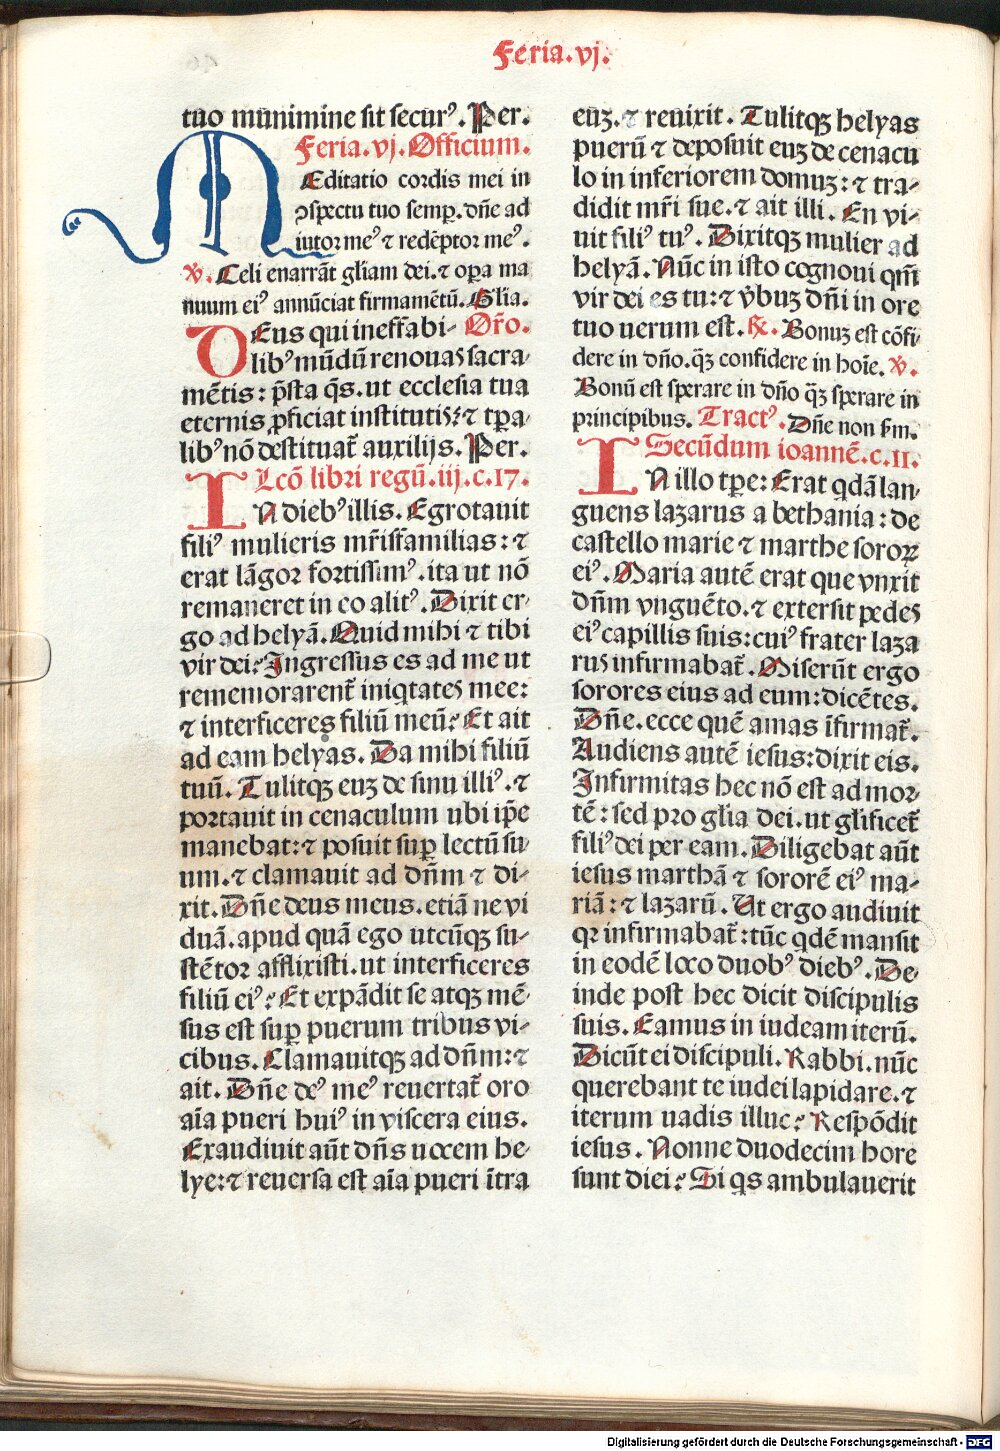 Feria.vj.
tuo munimine sit securꝰ. Per.
Feria.vj.Officium.
MEditatio cordis mei in
ↄspectu tuo semp̲.dn̄e ad
iutor meꝰ ⁊ redēptor meꝰ.
ꝟ. Celi enarrāt gl̄iam dei.⁊ op̲a ma
nuum eiꝰ annūciat firmamētū. Gl̄ia.
DEus qui ineffabi- Or̄o.
libꝰ mūdū renouas sacra-
mētis: p̄sta q̄s. ut ecclesia tua
eternis ꝓficiat institutis: ⁊ tp̲a-
libꝰ nō destituat̄ auxilijs. Per.
Lcō libri regū.iij.c.17.
IN diebꝰ illis. Egrotauit
filiꝰ mulieris mr̄isfamilias: ⁊
erat lāgor fortissimꝰ. ita ut nō
remaneret in eo alitꝰ. Dixit er-
go ad helyā. Quid mihi ⁊ tibi
vir dei? Ingressus es ad me ut
rememorarent̄ iniqtates mee:
⁊ interficeres filiū meū? Et ait
ad eam helyas. Da mihi filiū
tuū. Tulitqꝫ euꝫ de sinu illiꝰ. ⁊
portauit in cenaculum ubi ip̄e
manebat: ⁊ posuit sup̲ lectū su-
um. ⁊ clamauit ad dn̄m ⁊ di-
xit. Dn̄e deus meus. etiā ne vi
duā. apud quā ego utcūqꝫ su-
stētor afflixisti. ut interficeres
filiū eiꝰ? Et expādit se atqꝫ mē-
sus est sup̲ puerum tribus vi-
cibus. Clamauitqꝫ ad dn̄m: ⁊
ait. Dn̄e deꝰ meꝰ reuertat̄ oro
aīa pueri huiꝰ in viscera eius.
Exaudiuit aūt dn̄s uocem he-
lye: ⁊ reuersa est aīa pueri ītra
euꝫ. ⁊ reuixit. Tulitqꝫ helyas
puerū ⁊ deposuit euꝫ de cenacu
lo in inferiorem domuꝫ: ⁊ tra-
didit mr̄i sue. ⁊ ait illi. En vi-
uit filiꝰ tuꝰ. Dixitqꝫ mulier ad
helyā. Nūc in isto cognoui qm̄
vir dei es tu: ⁊ v̄buꝫ dn̄i in ore
tuo uerum est. ℞. Bonuꝫ est cōfi-
dere in dn̄o. q̄ꝫ confidere in hoīe. ꝟ.
Bonū est sperare in dn̄o q̄ꝫ sperare in
principibus. Tractꝰ. Dn̄e non s̄m.
Secūdum ioannē.c.11.
IN illo tp̲e: Erat qdā lan-
guens lazarus a bethania: de
castello marie ⁊ marthe sororꝝ
eiꝰ. Maria autē erat que vnxit
dn̄m vnguēto. ⁊ extersit pedes
eiꝰ capillis suis: cuiꝰ frater laza
rus infirmabat̄. Miserūt ergo
sorores eius ad eum: dicētes.
Dn̄e. ecce quē amas īfirmat̄.
Audiens autē iesus: dixit eis.
Infirmitas hec nō est ad mor-
tē: sed pro gl̄ia dei. ut gl̄ificet̄
filiꝰ dei per eam. Diligebat aūt
iesus marthā ⁊ sororē eiꝰ ma-
riā: ⁊ lazarū. Ut ergo audiuit
qꝛ infirmabat̄: tūc qdē mansit
in eodē loco duobꝰ diebꝰ. De-
inde post hec dicit discipulis
suis. Eamus in iudeam iterū.
Dicūt ei discipuli. Rabbi. nūc
querebant te iudei lapidare. ⁊
iterum uadis illuc? Respōdit
iesus. Nonne duodecim hore
sunt diei? Si qs ambulauerit
Digitalisierung gefördert durch die Deutsche Forschungsgemeinschaft - DFG